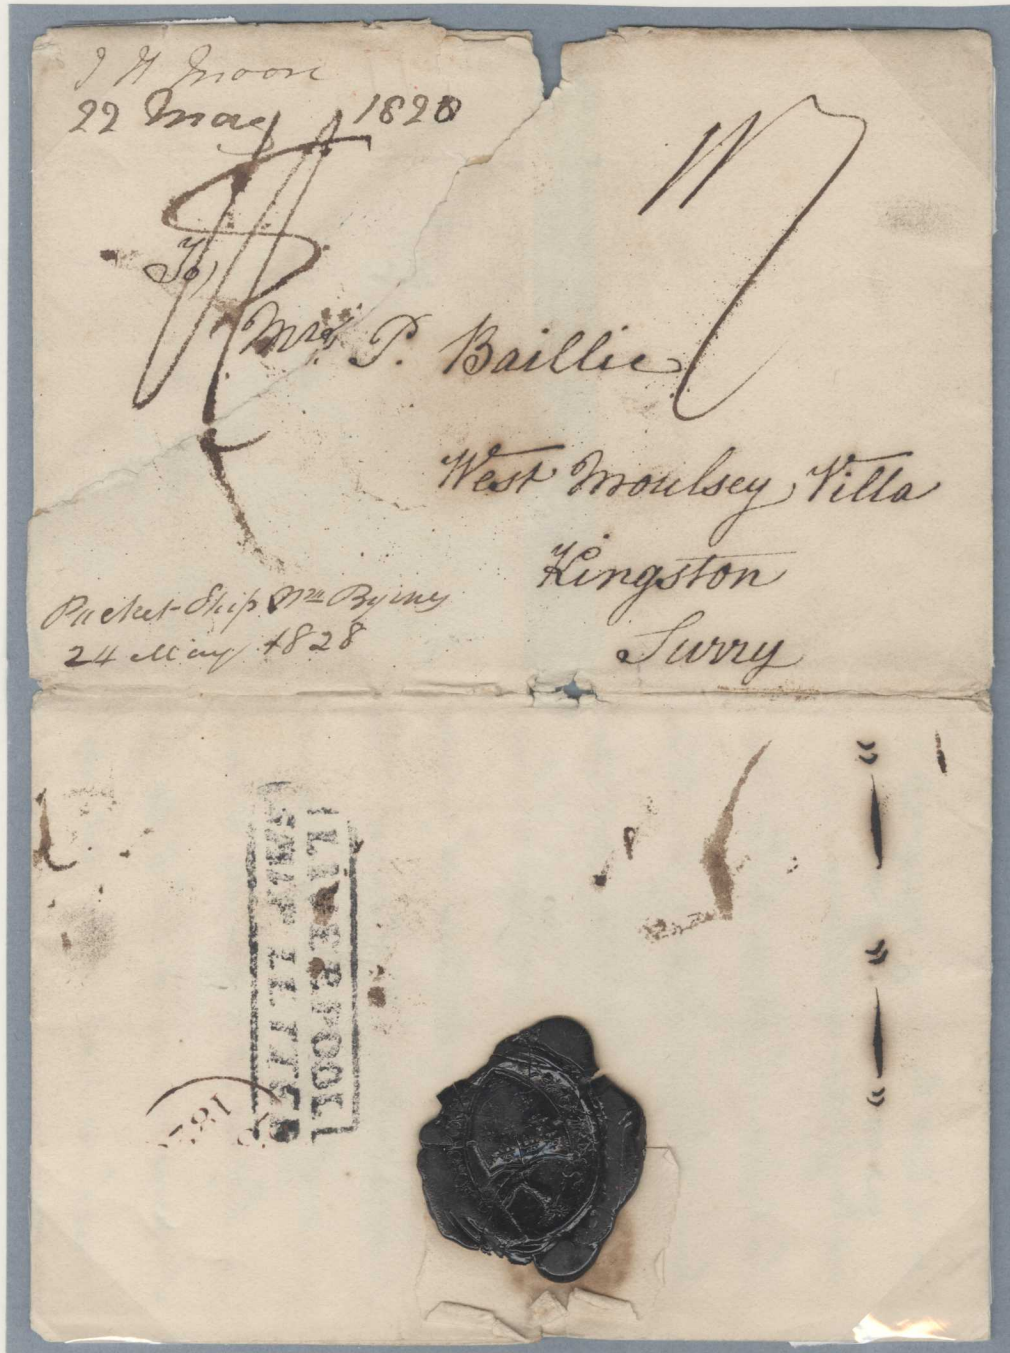 J H Moore
22 May 1828
To,
Mrs P. Baillie
West Moulsey Villa
Kingston
Surry
Packet Ship Wm Byrnes
24 May 1828
LIVERPOOL
SHIP LETTER
182